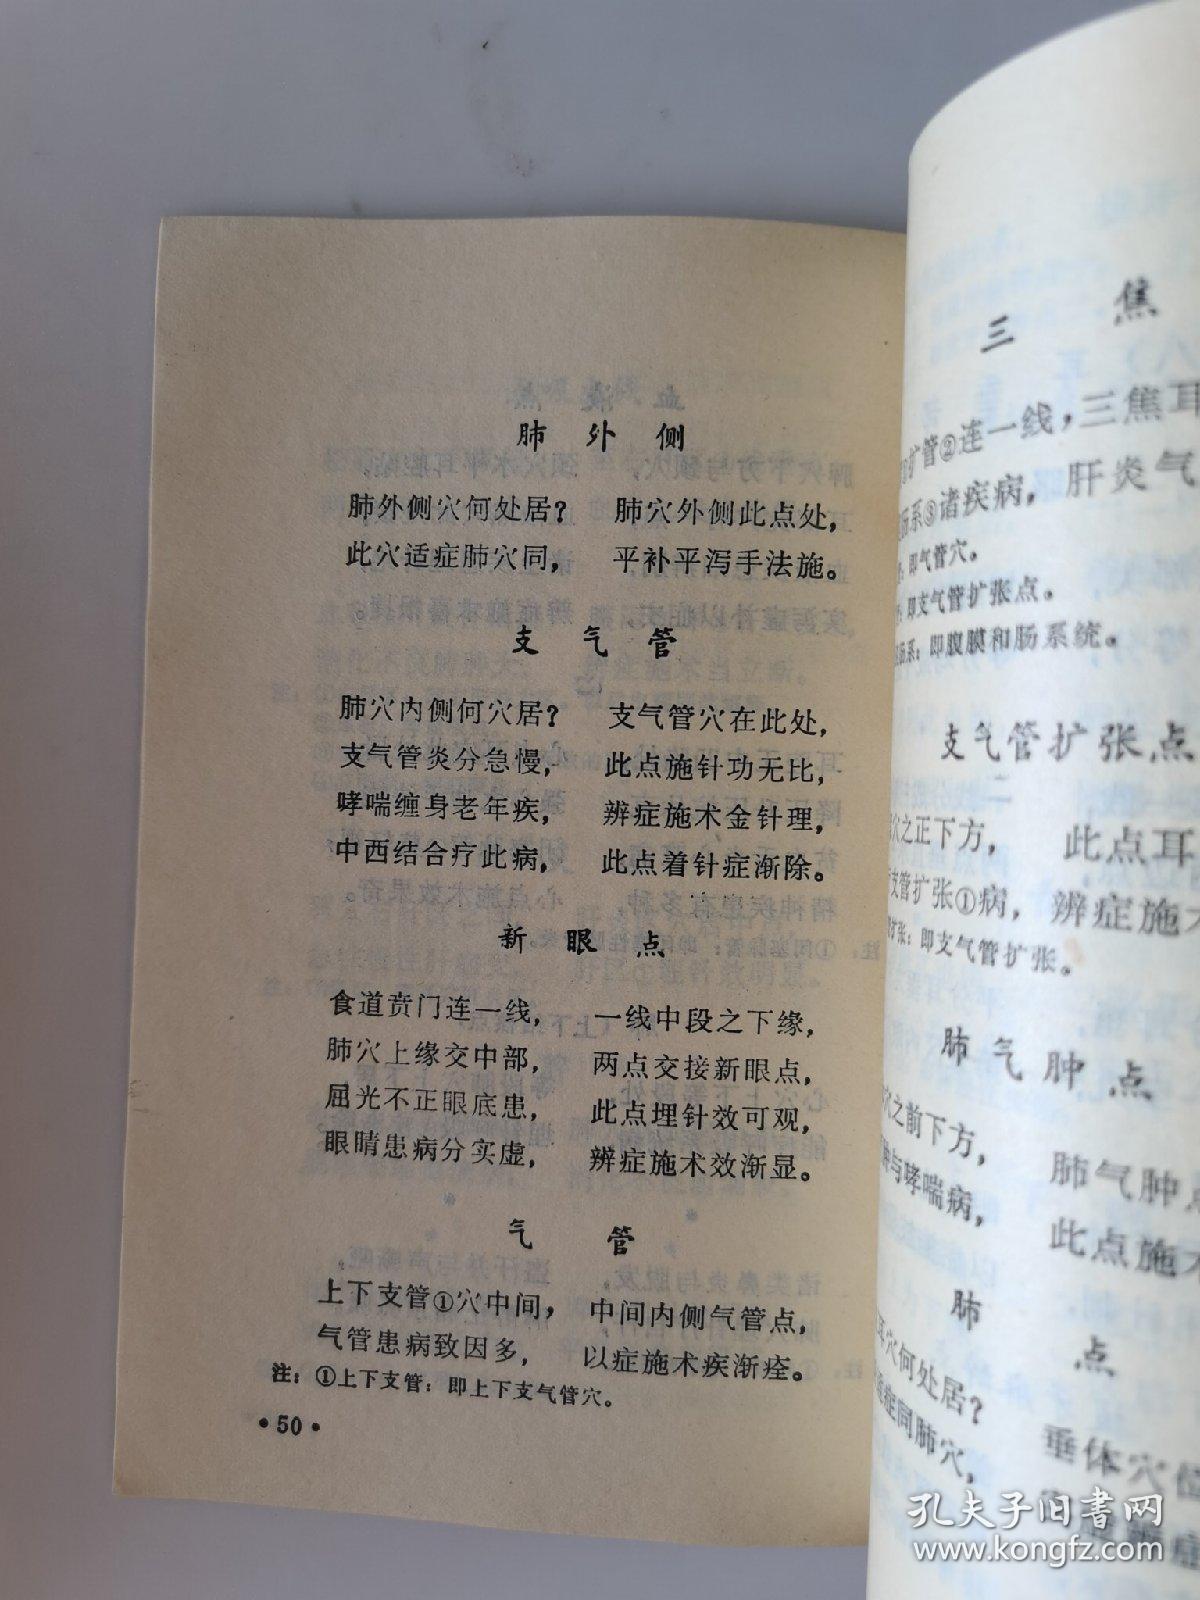 肺外侧
肺外侧穴何处居？ 肺穴外侧此点处，
此穴适症肺穴同， 平补平泻手法施。
支气管
肺穴内侧何穴居？ 支气管穴在此处，
支气管炎分急慢， 此点施针功无比，
哮喘缠身老年疾， 辨症施术金针理，
中西结合疗此病， 此点着针症渐除。
新眼点
食道贲门连一线， 一线中段之下缘，
肺穴上缘交中部， 两点交接新眼点，
屈光不正眼底患， 此点埋针效可观，
眼睛患病分实虚， 辨症施术效渐显。
气管
上下支管①穴中间， 中间内侧气管点，
气管患病致因多， 以症施术疾渐痊。
注：①上下支管：即上下支气管穴。
•50•
三焦
扩管②连一线，三焦耳
肠系③诸疾病，肝炎气
：即气管穴。
：即支气管扩张点。
肠系：即腹膜和肠系统。
支气管扩张点
穴之正下方， 此点耳
支管扩张①病， 辨症施术
扩张：即支气管扩张。
肺气肿点
穴之前下方， 肺气肿点
与哮喘病， 此点施术
肺点
耳穴何处居？ 垂体穴位
适症同肺穴，
孔夫子旧书网
www.kongfz.com